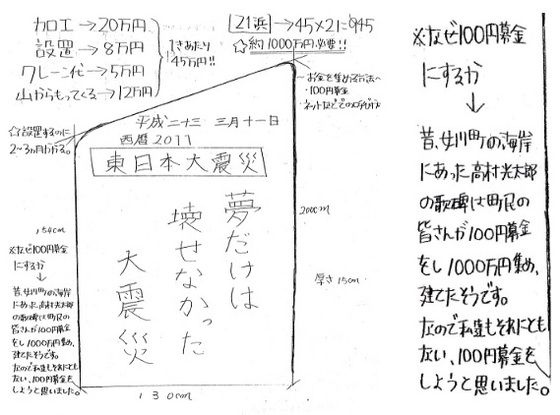 加工→20万円
設置→8万円
クレーン代→5万円
山からもってくる→12万円
1きあたり
45万円!!
21浜→45×21=945
☆約1000万円必要!!
お金を集める方法へ
・100円募金
☆設置するのに
2~3ヵ月かかる。
平成二十三 三月十一日
西暦2011
東日本大震災
夢だけは
壊せなかった
大震災
154cm
200cm
厚さ15cm
130cm
※なぜ100円募金
にするか
↓
昔、女川町の海岸
にあった高村光太郎
の歌碑は町民の
皆さんが100円募金
をし1000万円集め、
建てたそうです。
なので私達もそれにとも
ない、100円募金を
しようと思いました。
※なぜ100円募金
にするか
↓
昔、女川町の海岸
にあった高村光太郎
の歌碑は町民の
皆さんが100円募金
をし1000万円集め、
建てたそうです。
なので私達もそれにとも
ない、100円募金を
しようと思いました。